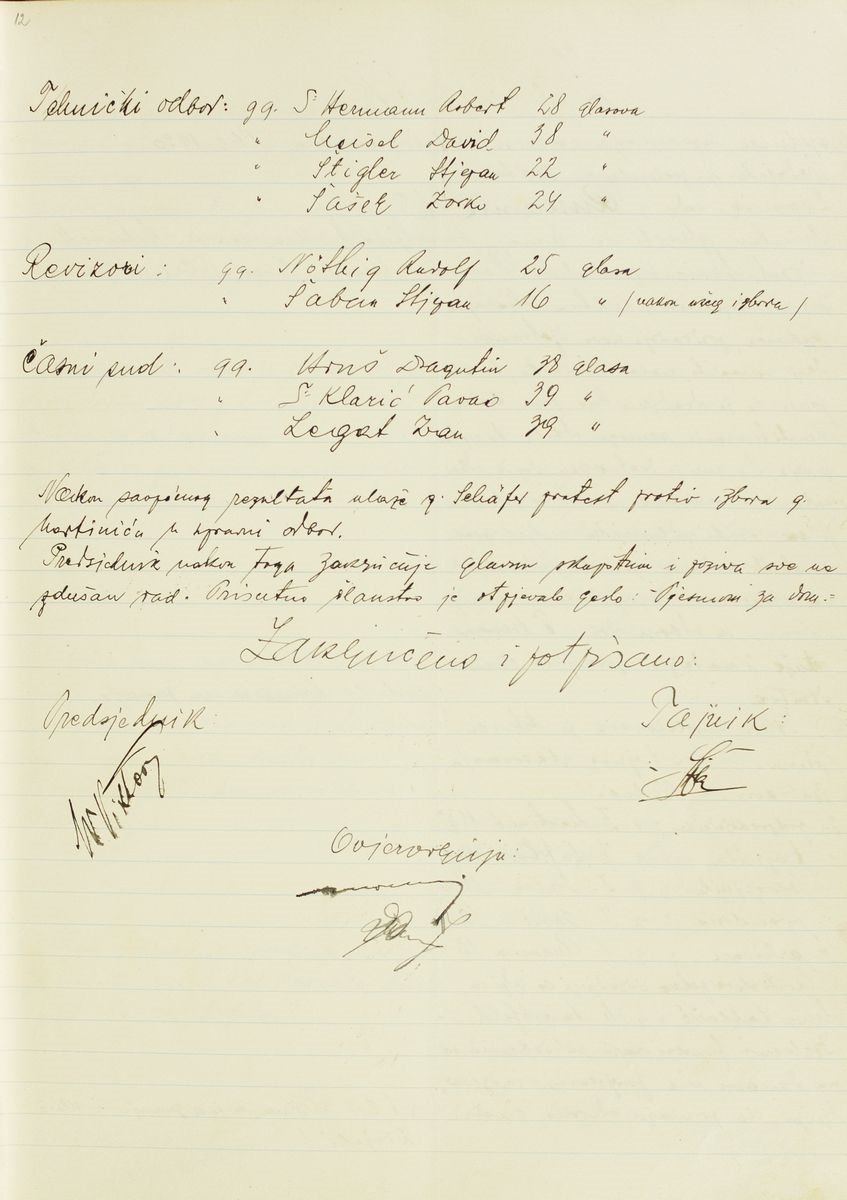 12
Tehnički odbor: gg. Hermann Robert 28 glasova
" Meisel David 38 "
" Štigler Stjepan 22 "
" Šašek Zorko 24 "
Revizori: gg. Nöthig Rudolf 25 glasa
" Šaban Stjepan 16 " (nakon užeg izbora)
Časni sud: gg. Hrnš Dragutin 38 glasa
" Klarić Pavao 39 "
" Legat Ivan 39 "
Nakon saopćenog rezultata ulaže g. Schäfer protest protiv izbora g.
Martinića u upravni odbor.
Predsjednik nakon toga zaključuje glavnu skupštinu i poziva sve na
zdušan rad. Prisutno članstvo je otpjevalo geslo: Pjesmom za dom.=
Zaključeno i potpisano:
Predsjednik: Tajnik:
Viktor
Ovjerovljuju: